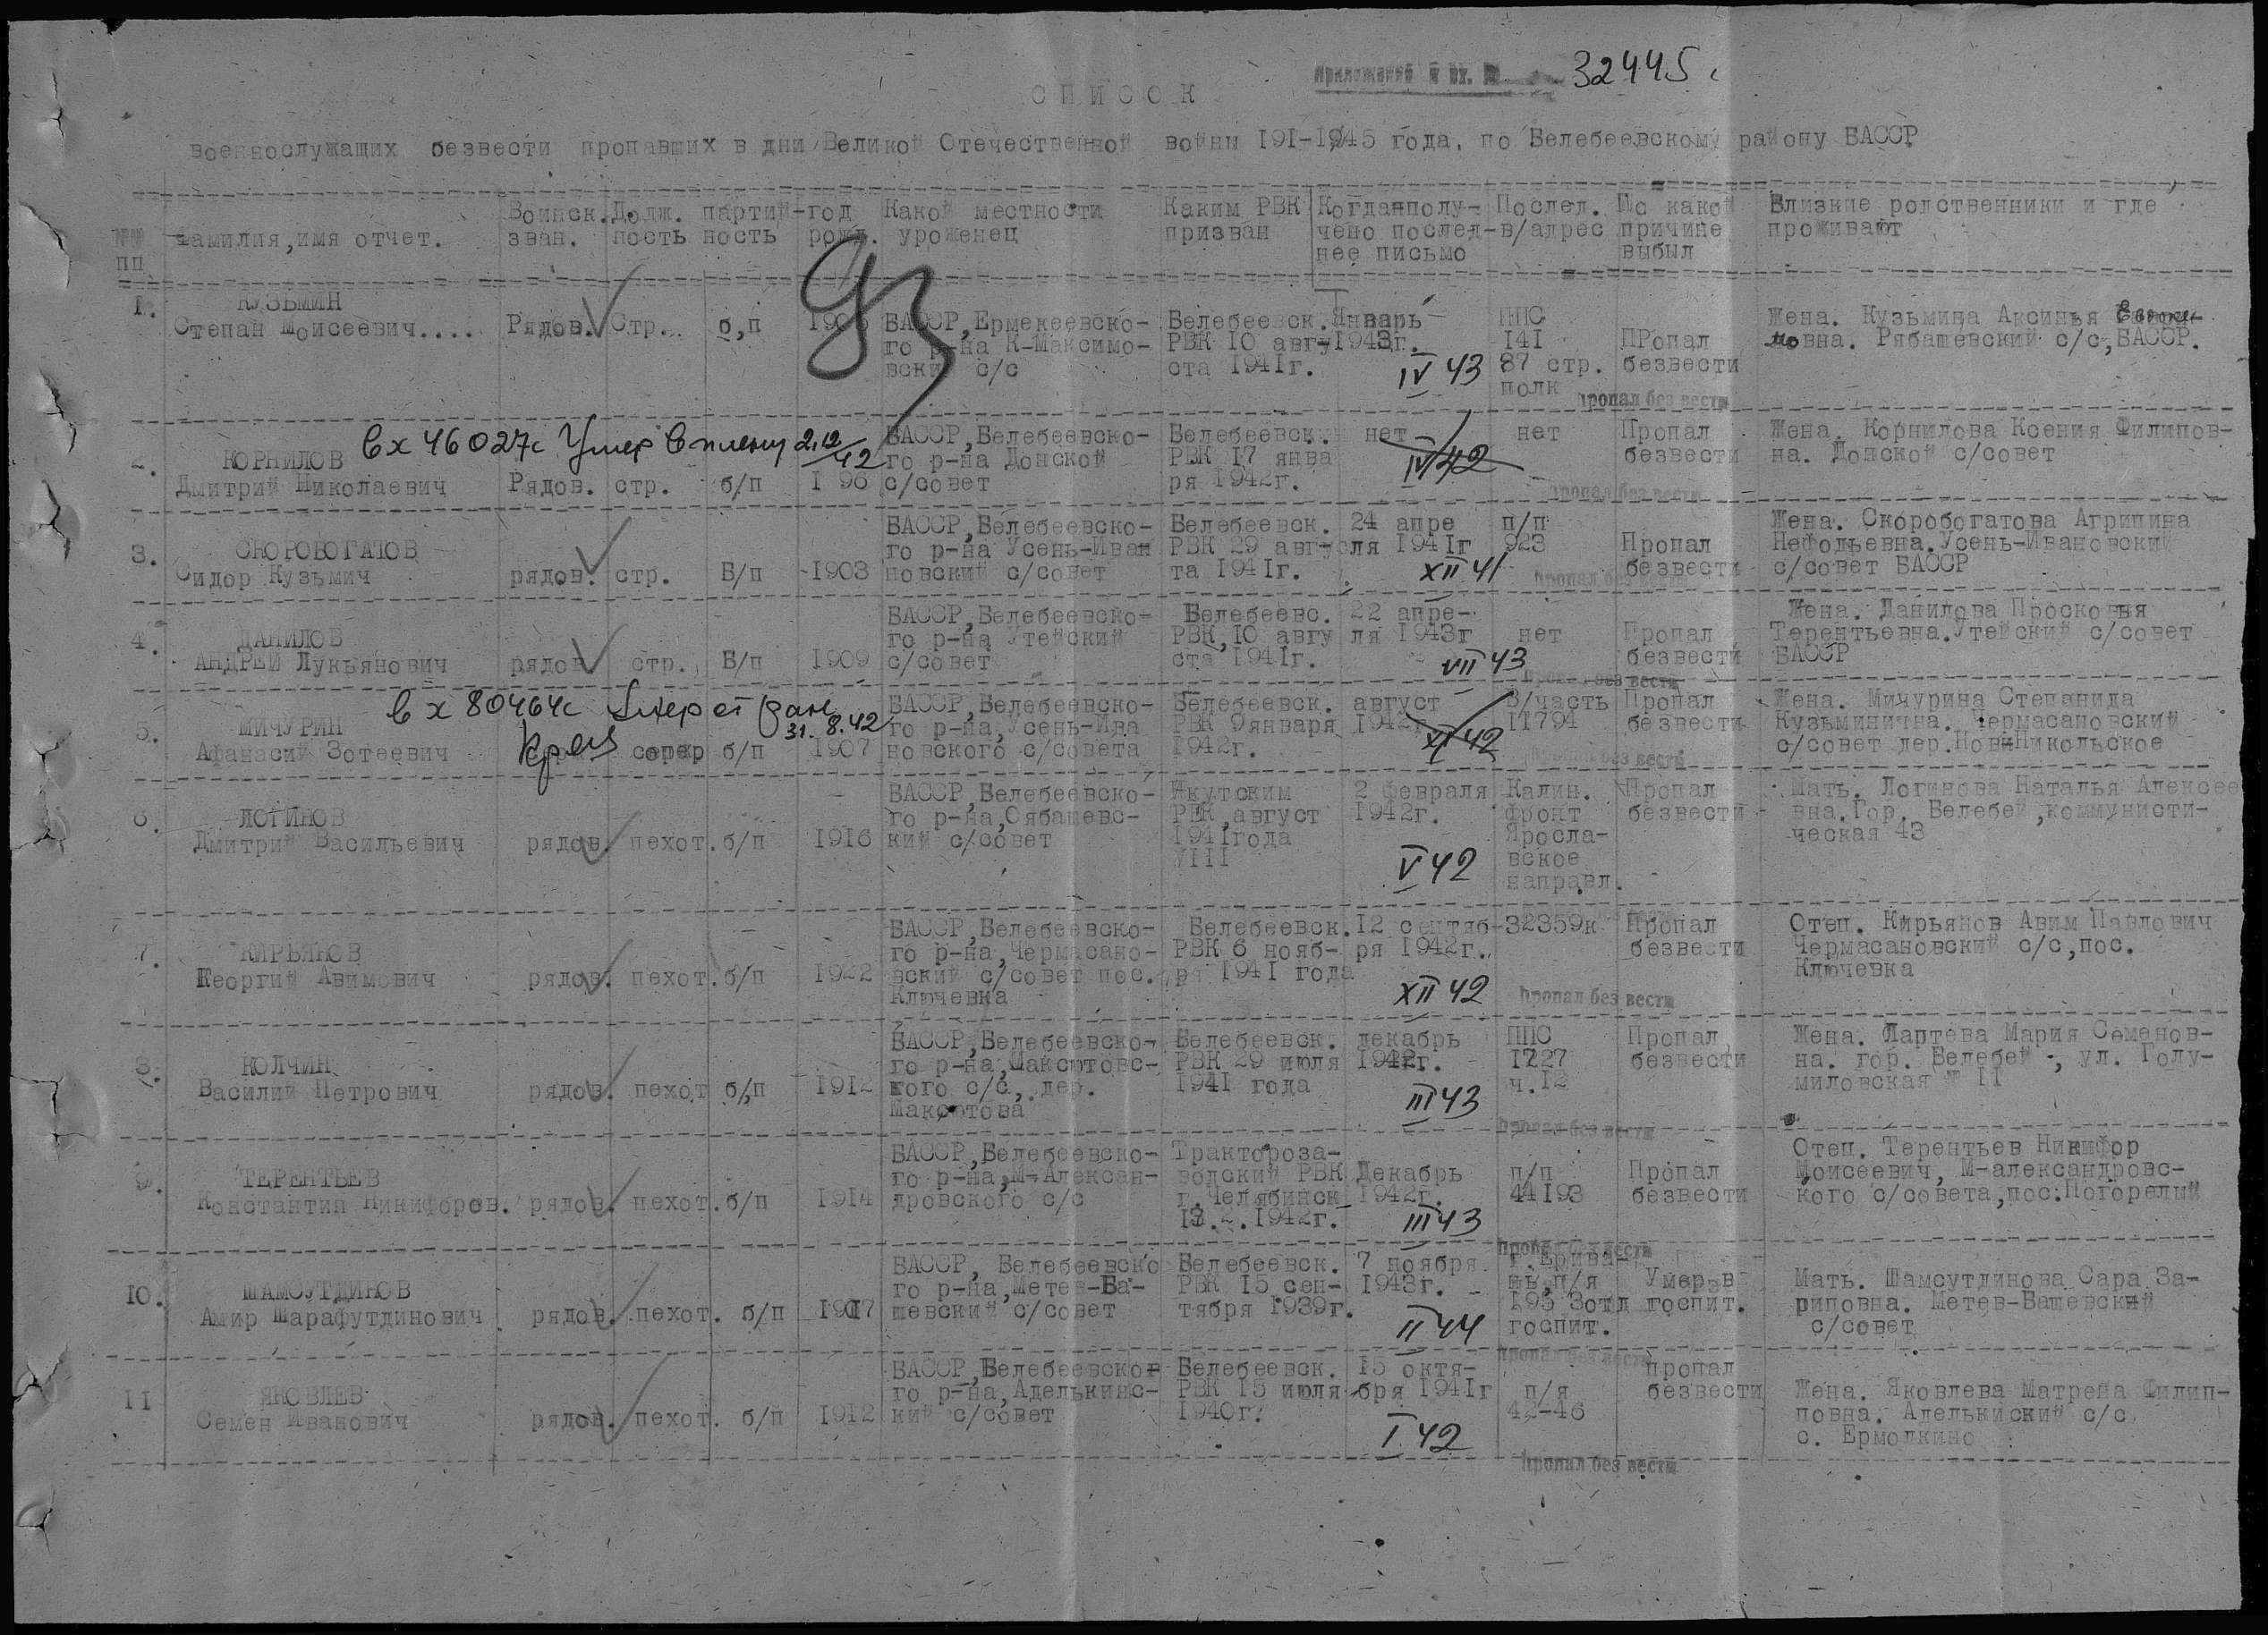 32445с
СПИСОК
военнослужащих безвести пропавших в дни Великой Отечественной войны 191-1945 года. по Белебеевскому району БАССР
№№ пп
фамилия,имя отчет.
Воинск. зван.
Долж. ность
партий- ность
год рожд.
Какой местности уроженец
Каким РВК призван
Когда полу- чено послед- нее письмо
Послед. в/адрес
По какой причине выбыл
Близкие родственники и где проживают
93
1.
КУЗЬМИН
Степан Моисеевич....
Рядов.
Стр..
б,п
БАССР,Ермекеевско-
го р-на К-Максимо-
вский с/с
Белебеевск.
РВК 10 авгу
ста 1941г.
Январь
1943г.
IV 43
ППС
141
87 стр.
полк
ПРопал
безвести
Пропал без вести
Жена. Кузьмина Аксинья
мовна. Рябашевский с/с,БАССР.
вх 46027с Умер в плену 2.12/42
КОРНИЛОВ
Дмитрий Николаевич
Рядов.
стр.
б/п
БАССР,Белебеевско-
го р-на Донской
с/совет
Белебеевск.
РВК 17 янва
ря 1942г.
нет
IV 42
нет
Пропал
безвести
Пропал без вести
Жена. Корнилова Ксения Филипов-
на. Донской с/совет
3.
СКОРОБОГАТОВ
Сидор Кузьмич
рядов.
стр.
Б/п
1903
БАССР,Белебеевско-
го р-на Усень-Иван
новский с/совет
Белебеевск.
РВК 29 авгус
та 1941г.
24 апре
ля 1941г
XII 41
п/п
923
Пропал
безвести
Пропал без вести
Жена. Скоробогатова Агрипина
Нефодьевна.Усень-Ивановский
с/совет БАССР
4.
ДАНИЛОВ
АНДРЕЙ Лукьянович
рядов
стр.
Б/п
1909
БАССР,Белебеевско-
го р-на Утейский
с/совет
Белебеевс.
РВК,10 авгу
ста 1941г.
22 апре-
ля 1943г
VII 43
нет
Пропал
безвести
Пропал без вести
Жена. Данилова Просковья
Терентьевна.Утейский с/совет
БАССР
вх 80464с Умер от ран
31.8.42
5.
МИЧУРИН
Афанасий Зотеевич
Кр-ец
сапер
б/п
1907
БАССР,Белебеевско-
го р-на,Усень-Ива
новского с/совета
Белебеевск.
РВК 9января
1942г.
август
1942г
XI 42
В/часть
11794
Пропал
безвести
Пропал без вести
Жена. Мичурина Степанида
Кузьминична. Чермасановский
с/совет дер.НовНикольское
6.
ЛОГИНОВ
Дмитрий Васильевич
рядов.
пехот.
б/п
1916
БАССР,Белебеевско-
го р-на,Оябашевс-
кий с/совет
Якутским
РВК,август
1941года
УIII
2 февраля
1942г.
V 42
Калин.
фронт
Яросла-
вское
направл.
Пропал
безвести
Мать. Логинова Наталья Алексее
вна.Гор. Белебей,коммунисти-
ческая 43
7.
КИРЬЯНОВ
Георгий Авимович
рядов.
пехот.
б/п
1922
БАССР,Белебеевско-
го р-на,Чермасано-
вский с/совет пос.
Ключевка
Белебеевск.
РВК 6 нояб-
ря 1941 года
12 сентяб-
ря 1942г.
XII 42
32359к
Пропал
безвести
Пропал без вести
Отец. Кирьянов Авим Павлович
Чермасановский с/с,пос.
Ключевка
8.
КОЛЧИН
Василий Петрович
рядов.
пехот
б/п
1912
БАССР,Белебеевско-
го р-на,Максютовс-
кого с/с, дер.
Максютова
Белебеевск.
РВК 29 июля
1941 года
декабрь
1942г.
III 43
ППС
1727
ч.12
Пропал
безвести
Пропал без вести
Жена. Лаптева Мария Семенов-
на. гор. Белебей, ул. Голу-
миловская № 11
9.
ТЕРЕНТЬЕВ
Константин Никифоров.
рядов.
пехот.
б/п
1914
БАССР,Белебеевско-
го р-на,М-Алексан-
дровского с/с
Тракторoза-
водский РВК
г.Челябинск
13.2.1942г.
Декабрь
1942г.
III 43
п/п
44193
Пропал
безвести
Пропал без вести
Отец. Терентьев Никифор
Моисеевич, М-александровс-
кого с/совета,пос.Погорелый
10.
ШАМСУТДИНОВ
Амир Шарафутдинович
рядов.
пехот.
б/п
1917
БАССР, Белебеевско
го р-на,Метев-Ба-
шевский с/совет
Белебеевск.
РВК 15 сен-
тября 1939г.
7 ноября
1943г.
II 44
г.Ерива-
нь,п/я
193 3отд
госпит.
Умер в
госпит.
Пропал без вести
Мать. Шамсутдинова Сара За-
риповна. Метев-Башевский
с/совет
11
ЯКОВЛЕВ
Семен Иванович
рядов.
пехот.
б/п
1912
БАССР,Белебеевско
го р-на,Аделькинс-
кий с/совет
Белебеевск.
РВК 15 июля
1940г.
15 октя-
бря 1941г
I 42
п/я
42-46
пропал
безвести
Пропал без вести
Жена. Яковлева Матрена Филип-
повна. Аделькиский с/с
с. Ермолкино